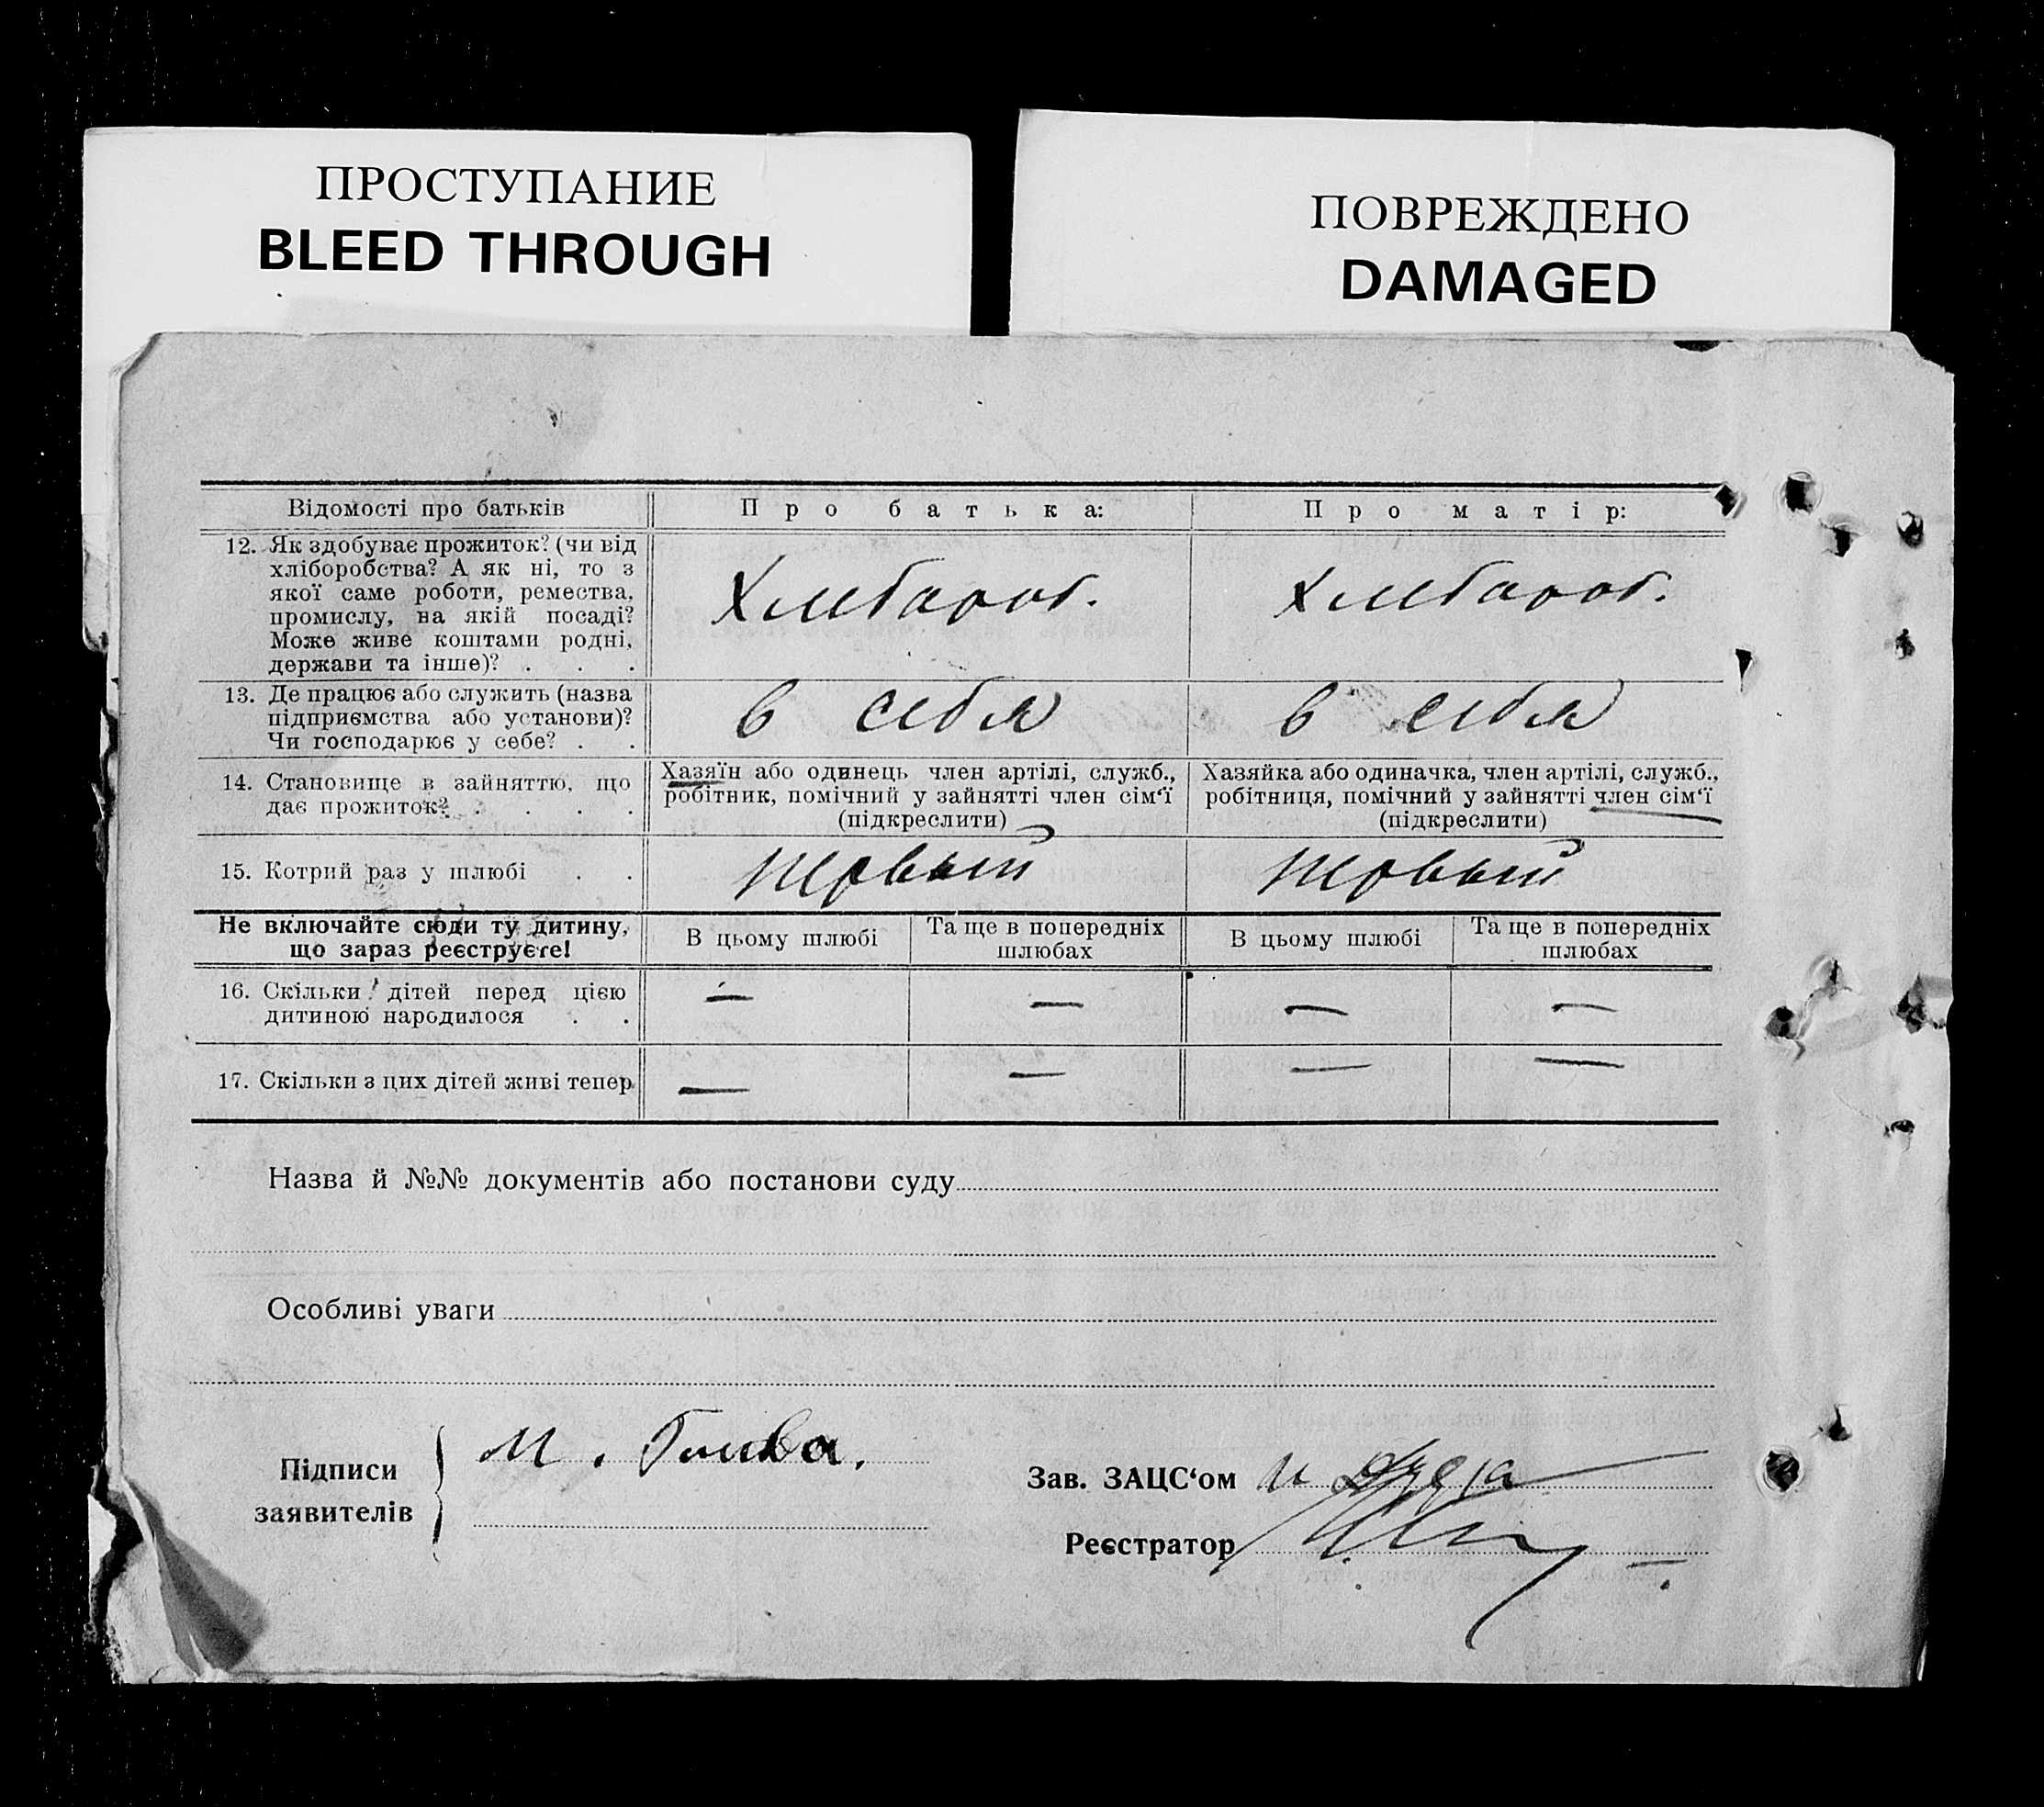 ПРОСТУПАНИЕ
BLEED THROUGH
ПОВРЕЖДЕНО
DAMAGED
Відомості про батьків
Про батька:
Про матір:
12. Як здобуває прожиток? (чи від
хліборобства? А як ні, то з
якої саме роботи, ремества,
промислу, на якій посаді?
Може живе коштами родні,
держави та інше)? . . .
Хлебороб.
Хлебороб.
13. Де працює або служить (назва
підприємства або установи)?
Чи господарює у себе? . .
в себя
в себя
14. Становище в зайняттю, що
дає прожиток? . . . .
Хазяїн або одинець член артілі, служб.,
робітник, помічний у зайнятті член сім‘ї
(підкреслити)
Хазяйка або одиначка, член артілі, служб.,
робітниця, помічний у зайнятті член сім‘ї
(підкреслити)
15. Котрий раз у шлюбі . .
первый
первый
Не включайте сюди ту дитину,
що зараз реєструєте!
В цьому шлюбі
Та ще в попередніх
шлюбах
В цьому шлюбі
Та ще в попередніх
шлюбах
16. Скільки дітей перед цією
дитиною народилося . .
—
—
—
—
17. Скільки з цих дітей живі тепер
—
—
—
—
Назва й №№ документів або постанови суду
Особливі уваги
Підписи
заявителів
М.
Зав. ЗАЦС‘ом
Реєстратор